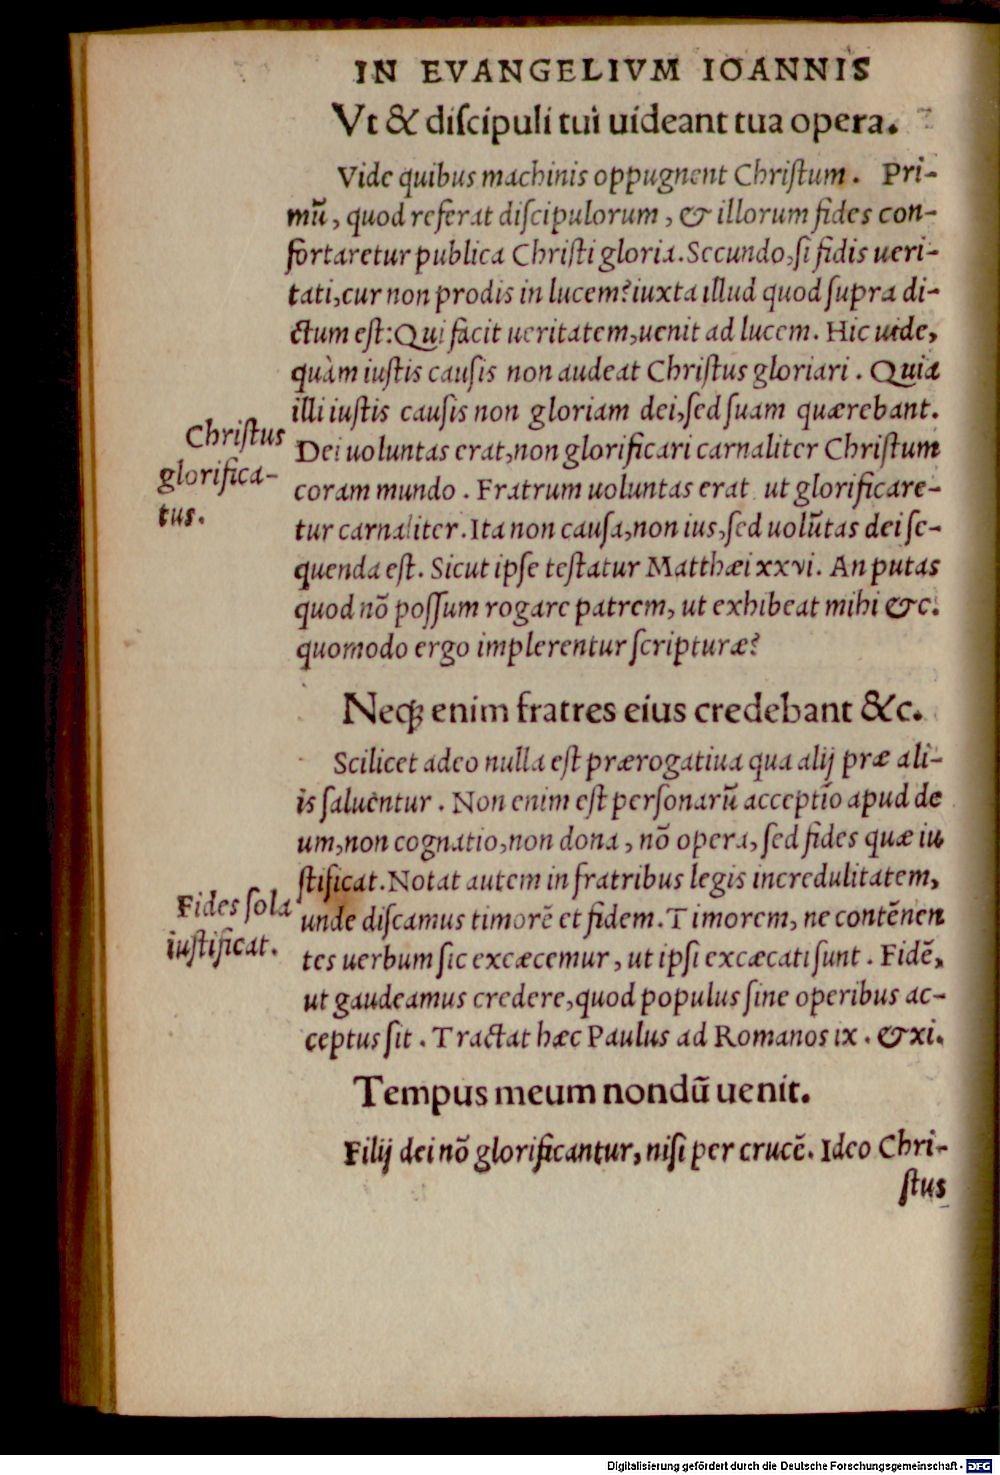 IN EVANGELIVM IOANNIS
Vt & diſcipuli tui uideant tua opera.
Vide quibus machinis oppugnent Chriſtum. Pri-
mū, quod referat diſcipulorum, & illorum fides con-
fortaretur publica Chriſti gloria. Secundo, ſi fidis ueri-
tati, cur non prodis in lucem? iuxta illud quod ſupra di-
ctum eſt: Qui facit ueritatem, uenit ad lucem. Hic uide,
quàm iuſtis cauſis non audeat Chriſtus gloriari. Quia
illi iuſtis cauſis non gloriam dei, ſed ſuam quærebant.
Chriſtus
glorifica-
tus.
Dei uoluntas erat, non glorificari carnaliter Chriſtum
coram mundo. Fratrum uoluntas erat ut glorificare-
tur carnaliter. Ita non cauſa, non ius, ſed uolūtas dei ſe-
quenda eſt. Sicut ipſe teſtatur Matthæi xxvi. An putas
quod nō poſſum rogare patrem, ut exhibeat mihi &c.
quomodo ergo implerentur ſcripturæ?
Neqꝫ enim fratres eius credebant &c.
Scilicet adeo nulla eſt prærogatiua qua alij præ ali-
is ſaluentur. Non enim eſt perſonarū acceptio apud de
um, non cognatio, non dona, nō opera, ſed fides quæ iu
ſtificat. Notat autem in fratribus legis incredulitatem,
Fides ſola
iuſtificat.
unde diſcamus timorē et fidem. Timorem, ne contēnen
tes uerbum ſic excæcemur, ut ipſi excæcati ſunt. Fidē,
ut gaudeamus credere, quod populus ſine operibus ac-
ceptus ſit. Tractat hæc Paulus ad Romanos ix. & xi.
Tempus meum nondū uenit.
Filij dei nō glorificantur, niſi per crucē. Ideo Chri-
ſtus
Digitalisierung gefördert durch die Deutsche Forschungsgemeinschaft - DFG